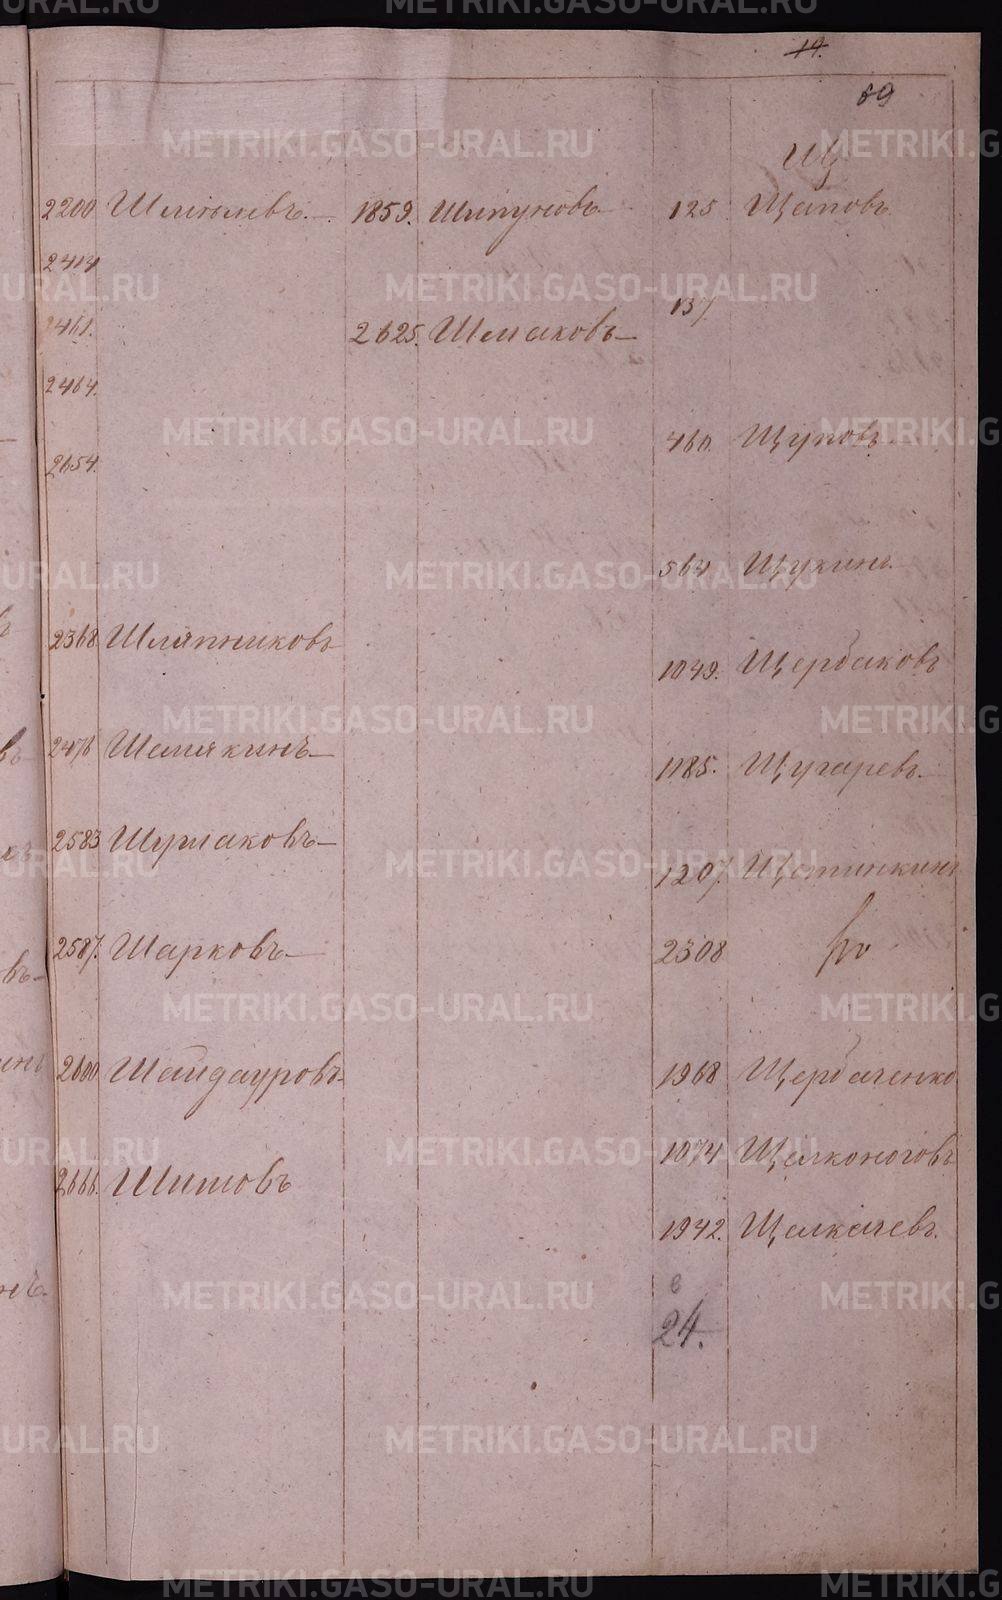 14.
69
Щ
2200 Шмелевъ.
2414
2461.
2464.
2654.
2368 Шляпниковъ
2476 Шемякинъ
2583 Шурлаковъ
2587. Шарковъ
2600 Шайдауровъ
2666. Шитовъ
1859. Шипуновъ
2625. Шмаковъ
125 Щаповъ
137
460. Щуповъ
564 Щукинъ
1049. Щербаковъ
1185. Щугаревъ
1207. Щетинкинъ
2308
1968 Щербаченко
1074 Щелконоговъ
1942. Щелкачевъ.
в
24.
METRIKI.GASO-URAL.RU